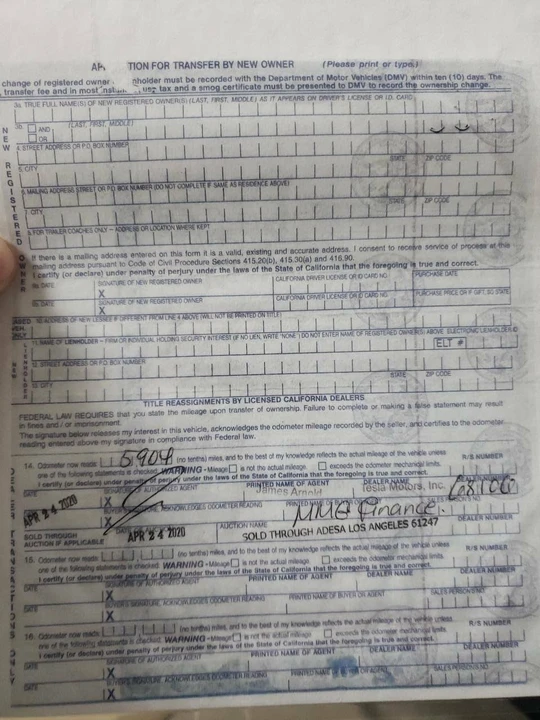 AP TION FOR TRANSFER BY NEW OWNER (Please print or type.)
change of registered owner nholder must be recorded with the Department of Motor Vehicles (DMV) within ten (10) days. The
transfer fee and in most use tax and a smog certificate must be presented to DMV to record the ownership change.
3a. TRUE FULL NAME(S) OF NEW REGISTERED OWNER(S) (LAST, FIRST, MIDDLE) AS IT APPEARS ON DRIVER'S LICENSE OR I.D. CARD
3b. AND (LAST, FIRST, MIDDLE)
OR
4. STREET ADDRESS OR P.O. BOX NUMBER
5. CITY STATE ZIP CODE
6. MAILING ADDRESS STREET OR P.O. BOX NUMBER (DO NOT COMPLETE IF SAME AS RESIDENCE ABOVE)
7. CITY STATE ZIP CODE
8. FOR TRAILER COACHES ONLY – ADDRESS OR LOCATION WHERE KEPT
NEW REGISTERED OWNER
If there is a mailing address entered on this form it is a valid, existing and accurate address. I consent to receive service of process at this
mailing address pursuant to Code of Civil Procedure Sections 415.20(b), 415.30(a) and 416.90.
I certify (or declare) under penalty of perjury under the laws of the State of California that the foregoing is true and correct.
9a. DATE SIGNATURE OF NEW REGISTERED OWNER CALIFORNIA DRIVER LICENSE OR ID CARD NO. PURCHASE DATE
X
9b. DATE SIGNATURE OF NEW REGISTERED OWNER CALIFORNIA DRIVER LICENSE OR ID CARD NO. PURCHASE PRICE OR IF GIFT, SO STATE
X
VEH. ONLY 10. ADDRESS OF NEW LESSEE IF DIFFERENT FROM LINE 4 ABOVE (WILL NOT BE PRINTED ON TITLE)
11. NAME OF LIENHOLDER – FIRM OR INDIVIDUAL HOLDING SECURITY INTEREST (IF NO LIEN, WRITE "NONE") DO NOT ENTER NAME OF REGISTERED OWNER(S) ABOVE ELECTRONIC LIENHOLDER ID
ELT #
12. STREET ADDRESS OR P.O. BOX NUMBER
13. CITY STATE ZIP CODE
TITLE REASSIGNMENTS BY LICENSED CALIFORNIA DEALERS
FEDERAL LAW REQUIRES that you state the mileage upon transfer of ownership. Failure to complete or making a false statement may result
in fines and / or imprisonment.
The signature below releases my interest in this vehicle, acknowledges the odometer mileage recorded by the seller, and certifies to the odometer
reading entered above my signature in compliance with Federal law.
14. Odometer now reads 5904 (no tenths) miles, and to the best of my knowledge reflects the actual mileage of the vehicle unless R/S NUMBER
one of the following statements is checked. WARNING - Mileage is not the actual mileage exceeds the odometer mechanical limits.
I certify (or declare) under penalty of perjury under the laws of the State of California that the foregoing is true and correct.
DATE SIGNATURE OF AUTHORIZED AGENT PRINTED NAME OF AGENT DEALER NAME DEALER NUMBER
APR 24 2020 X James Arnold Tesla Motors, Inc.
X
SOLD THROUGH AUCTION IF APPLICABLE APR 24 2020 AUCTION NAME DEALER NUMBER
SOLD THROUGH ADESA LOS ANGELES 61247
15. Odometer now reads (no tenths) miles, and to the best of my knowledge reflects the actual mileage of the vehicle unless R/S NUMBER
one of the following statements is checked. WARNING - Mileage is not the actual mileage exceeds the odometer mechanical limits.
I certify (or declare) under penalty of perjury under the laws of the State of California that the foregoing is true and correct.
DATE SIGNATURE OF AUTHORIZED AGENT PRINTED NAME OF AGENT DEALER NAME DEALER NUMBER
X
DATE BUYER'S SIGNATURE, ACKNOWLEDGES ODOMETER READING PRINTED NAME OF BUYER OR AGENT SALES PERSON'S NO.
X
16. Odometer now reads (no tenths) miles, and to the best of my knowledge reflects the actual mileage of the vehicle unless R/S NUMBER
one of the following statements is checked. WARNING - Mileage is not the actual mileage exceeds the odometer mechanical limits.
I certify (or declare) under penalty of perjury under the laws of the State of California that the foregoing is true and correct.
DATE SIGNATURE OF AUTHORIZED AGENT PRINTED NAME OF AGENT DEALER NAME DEALER NUMBER
X
DATE BUYER'S SIGNATURE, ACKNOWLEDGES ODOMETER READING PRINTED NAME OF BUYER OR AGENT SALES PERSON'S NO.
X